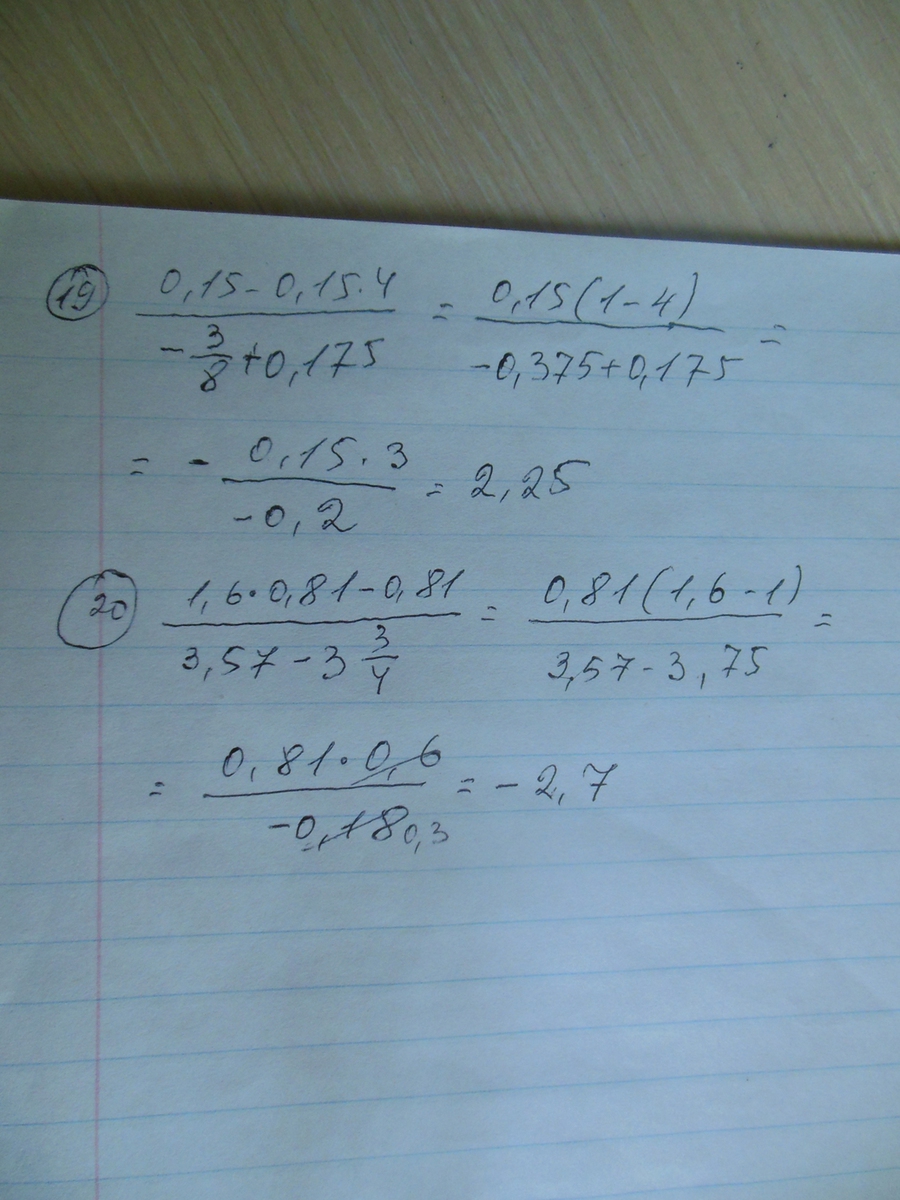 19 (0,15 - 0,15·4)/(-3/8 + 0,175) = 0,15(1-4)/(-0,375+0,175) =
= - 0,15·3/(-0,2) = 2,25
20 (1,6·0,81-0,81)/(3,57-3 3/4) = 0,81(1,6-1)/(3,57-3,75) =
= 0,81·0,6/(-0,18 0,3) = -2,7